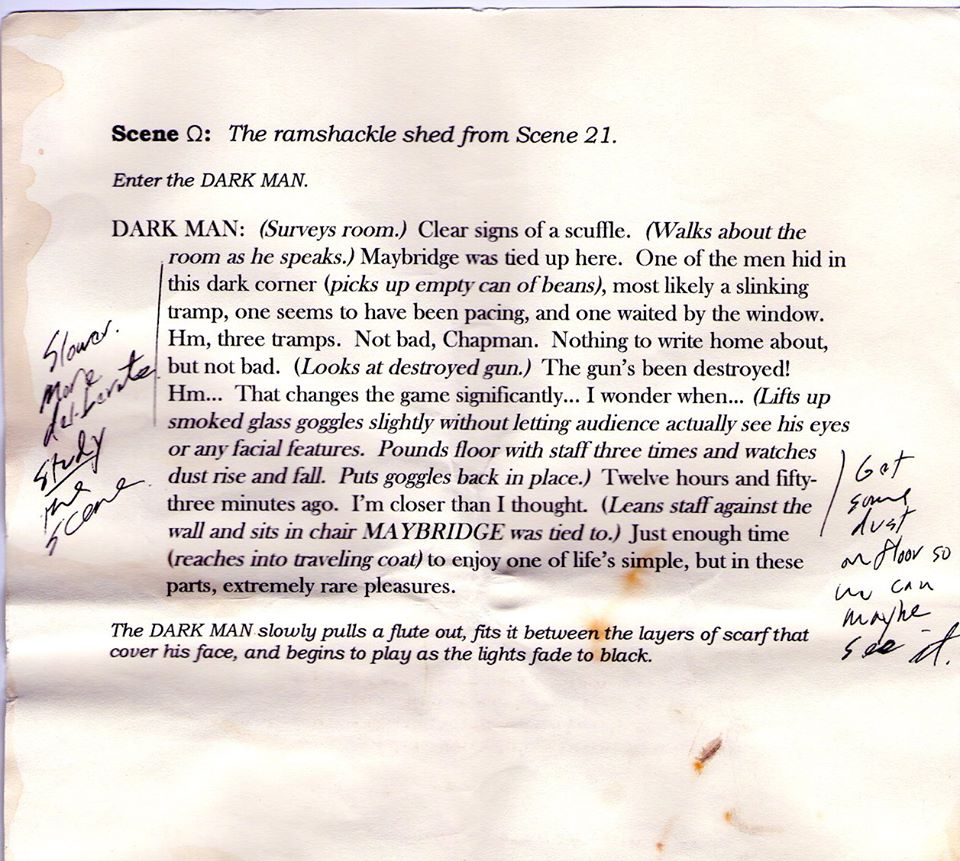 Scene Ω: The ramshackle shed from Scene 21.
Enter the DARK MAN.
DARK MAN: (Surveys room.) Clear signs of a scuffle. (Walks about the
room as he speaks.) Maybridge was tied up here. One of the men hid in
this dark corner (picks up empty can of beans), most likely a slinking
tramp, one seems to have been pacing, and one waited by the window.
Hm, three tramps. Not bad, Chapman. Nothing to write home about,
but not bad. (Looks at destroyed gun.) The gun's been destroyed!
Hm... That changes the game significantly... I wonder when... (Lifts up
smoked glass goggles slightly without letting audience actually see his eyes
or any facial features. Pounds floor with staff three times and watches
dust rise and fall. Puts goggles back in place.) Twelve hours and fifty-
three minutes ago. I'm closer than I thought. (Leans staff against the
wall and sits in chair MAYBRIDGE was tied to.) Just enough time
(reaches into traveling coat) to enjoy one of life's simple, but in these
parts, extremely rare pleasures.
The DARK MAN slowly pulls a flute out, fits it between the layers of scarf that
cover his face, and begins to play as the lights fade to black.
Slower.
More
deliberate
Study
the
scene.
Get
some
dust
on floor so
we can
maybe
see it.